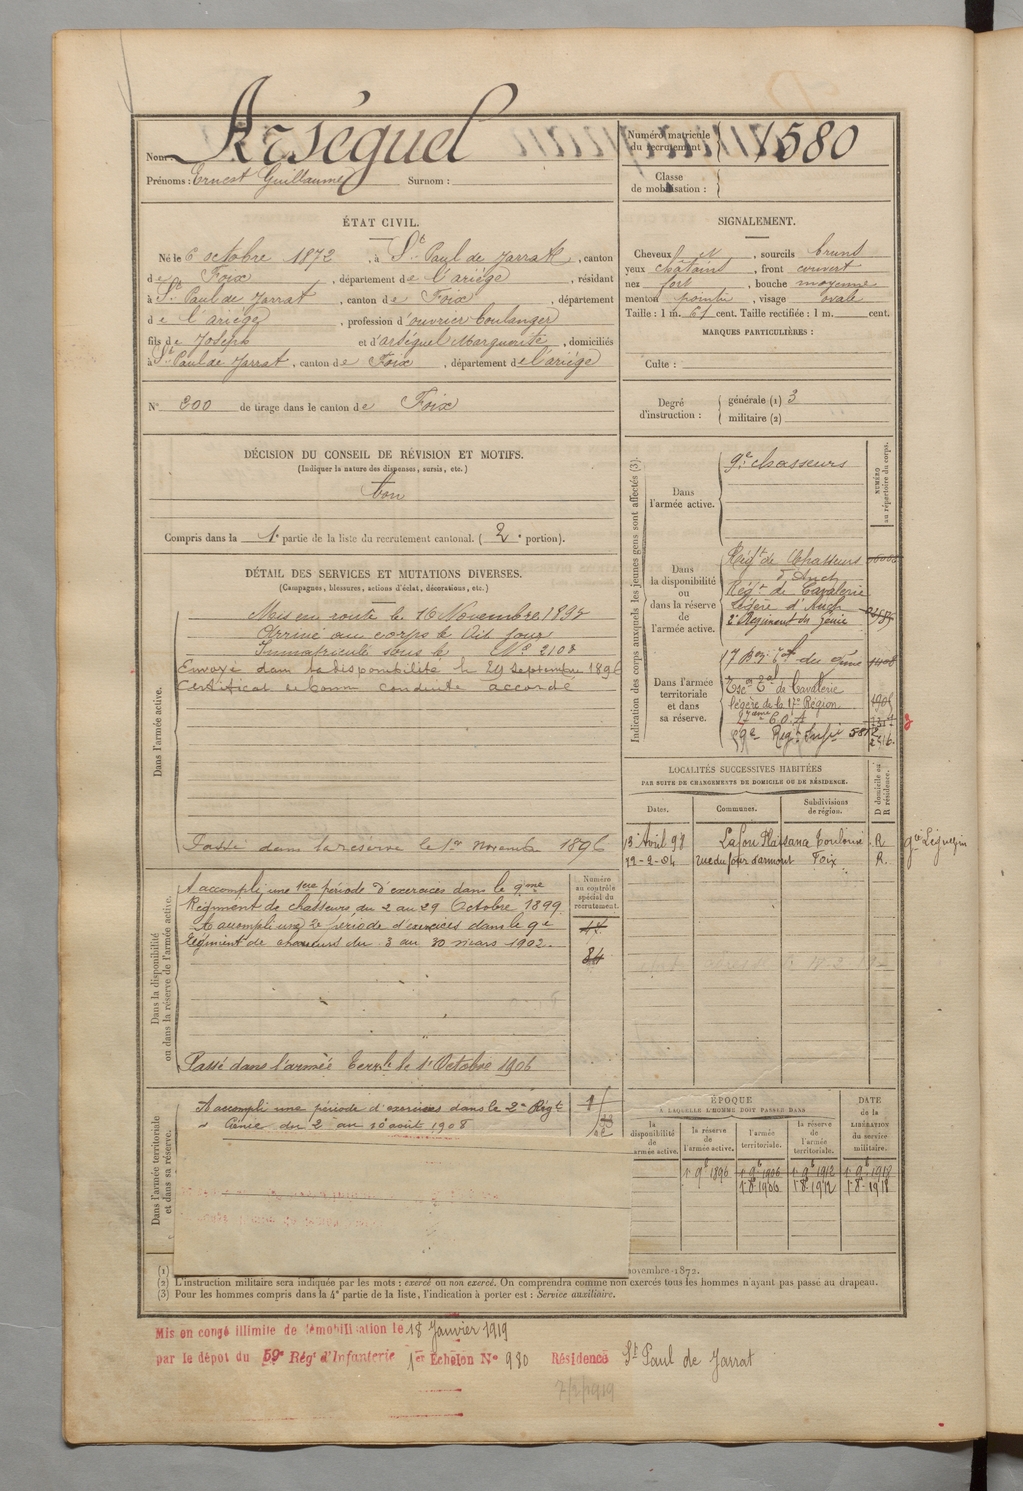 Nom Arséguel
Prénoms : Ernest Guillaume Surnom :
Numéro matricule du recrutement 1580
Classe de mobilisation :
ÉTAT CIVIL.
Né le 6 octobre 1872, à St Paul de Jarrat, canton
de Foix, département de l'ariège, résidant
à St Paul de Jarrat, canton de Foix, département
de l'ariège, profession d'ouvrier boulanger
fils de Joseph et d'arséguel Marguerite, domiciliés
à St Paul de Jarrat, canton de Foix, département de l'ariège
N° 200 de tirage dans le canton de Foix
SIGNALEMENT.
Cheveux et, sourcils bruns
yeux châtains, front couvert
nez fort, bouche moyenne
menton pointu, visage ovale
Taille : 1 m. 61 cent. Taille rectifiée : 1 m. cent.
MARQUES PARTICULIÈRES :
Culte :
Degré d'instruction : générale (1) 3
militaire (2)
DÉCISION DU CONSEIL DE RÉVISION ET MOTIFS.
(Indiquer la nature des dispenses, sursis, etc.)
bon
Compris dans la 1e partie de la liste du recrutement cantonal. ( 2e portion).
DÉTAIL DES SERVICES ET MUTATIONS DIVERSES.
(Campagnes, blessures, actions d'éclat, décorations, etc.)
Dans l'armée active.
Mis en route le 16 Novembre 189
Arrivé au corps le dit jour
Immatriculé sous le N° 2108
Envoyé dans la disponibilité le 29 Septembre 1896
Certificat de bonne conduite accordé
Passé dans la réserve le 1er novembre 1896
Indication des corps auxquels les jeunes gens sont affectés (3).
NUMÉRO au répertoire du corps.
Dans l'armée active.
9e chasseurs
Dans la disponibilité ou dans la réserve de l'armée active.
Régt de Chasseurs
d'Auch
Régt de Cavalerie
légère d'Auch
2e Régiment du Génie
Dans l'armée territoriale et dans sa réserve.
17 Bon Tal du Génie 1408
Esc on Tal de Cavalerie
légère de la 17e Région 1905
59e Régt Infie
LOCALITÉS SUCCESSIVES HABITÉES
PAR SUITE DE CHANGEMENTS DE DOMICILE OU DE RÉSIDENCE.
Dates. Communes. Subdivisions de région. D domicile ou R résidence.
13 Avril 98 Toulouse R
12-2-04 Foix R.
Dans la disponibilité ou dans la réserve de l'armée active.
Numéro au contrôle spécial du recrutement.
A accompli une 1ère période d'exercices dans le 9me
Régiment de chasseurs du 2 au 29 Octobre 1899
A accompli une 2e période d'exercices dans le 9e
Régiment de chasseurs du 3 au 30 mars 1902.
84
Passé dans l'armée Terrle le 1er Octobre 1906
Dans l'armée territoriale et dans sa réserve.
A accompli une période d'exercices dans le 2e Régt
de Génie du 2 au 10 août 1908
ÉPOQUE
À LAQUELLE L'HOMME DOIT PASSER DANS
la disponibilité de l'armée active. la réserve de l'armée active. l'armée territoriale. la réserve de l'armée territoriale.
DATE de la LIBÉRATION du service militaire.
1er 9b 1896 1er 9b 1906 1er 9b 1912 1er 9b 1918
1er 8b 1906 1er 8b 1912 1er 8b 1918
(1) novembre 1872.
(2) L'instruction militaire sera indiquée par les mots : exercé ou non exercé. On comprendra comme non exercés tous les hommes n'ayant pas passé au drapeau.
(3) Pour les hommes compris dans la 4e partie de la liste, l'indication à porter est : Service auxiliaire.
Mis en congé illimité de démobilisation le 18 Janvier 1919
par le dépot du 59e Régt d'Infanterie 1er Echelon N° 980 Résidence St Paul de Jarrat
7/2/1919